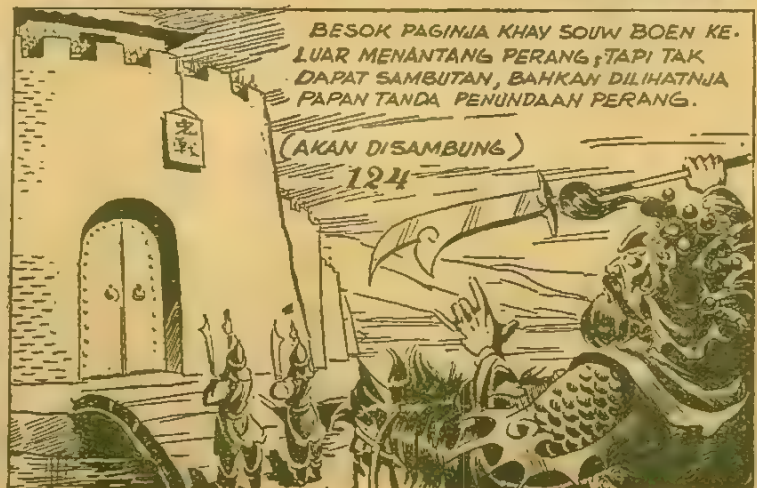 BESOK PAGINJA KHAY SOUW BOEN KE-
LUAR MENANTANG PERANG; TAPI TAK
DAPAT SAMBUTAN, BAHKAN DILIHATNJA
PAPAN TANDA PENUNDAAN PERANG.
(AKAN DISAMBUNG)
124
免戰